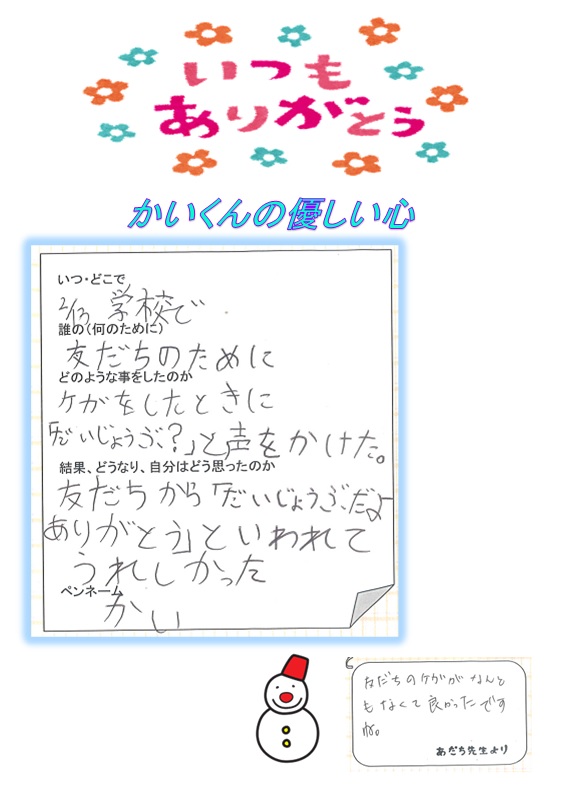 いつも
ありがとう
かいくんの優しい心
いつ・どこで
2/13 学校で
誰の（何のために）
友だちのために
どのような事をしたのか
ケがをしたときに
「だいじょうぶ？」と声をかけた。
結果、どうなり、自分はどう思ったのか
友だちから「だいじょうぶだよ
ありがとう」といわれて
うれしかった
ペンネーム
かい
友だちのケガがなんと
もなくて良かったです
ね。
あだち先生より